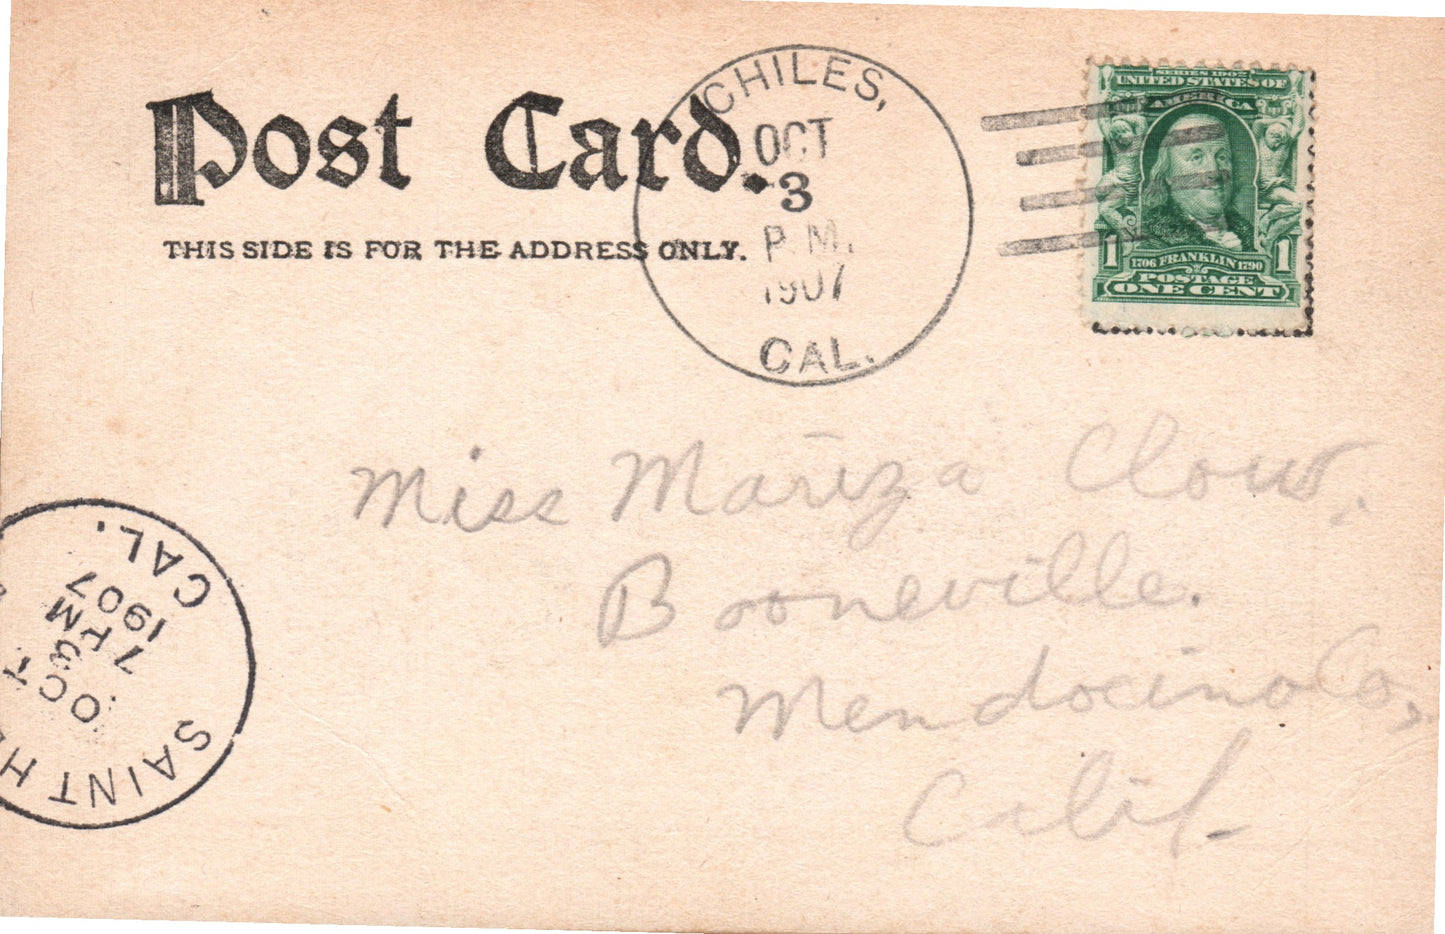 Post Card.
THIS SIDE IS FOR THE ADDRESS ONLY.
CHILES,
OCT
3
P.M.
1907
CAL.
SERIES 1902
UNITED STATES OF
AMERICA
1 1706 FRANKLIN 1790 1
POSTAGE
ONE CENT
Miss Mariza Clow.
Booneville.
Mendocino Co,
Calif.
SAINT HE
OCT
7 PM
1907
CAL.